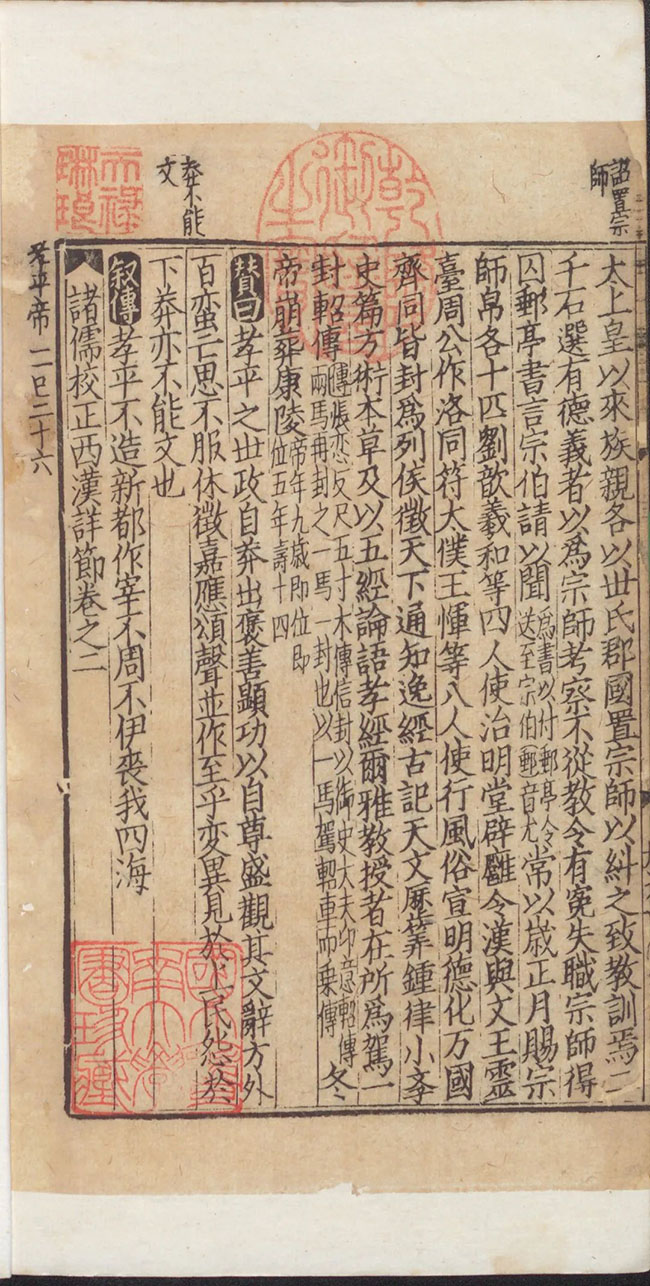 詔置宗
師
太上皇以來族親各以世氏郡國置宗師以糾之致教訓焉二
千石選有德義者以爲宗師考察不從教令有冤失職宗師得
因郵亭書言宗伯請以聞爲書以付郵亭令送至宗伯郵音尤常以歳正月賜宗
師帛各十匹劉歆羲和等四人使治明堂辟廱令漢與文王靈
臺周公作洛同符太僕王惲等八人使行風俗宣明德化万國
齊同皆封爲列侯徵天下通知逸經古記天文厯筭鍾律小學
史篇方術本草及以五經論語孝經爾雅教授者在所爲駕一
封軺傳傳張恋反尺五寸木傳信封以御史大夫印章軺傳兩馬再封之一馬一封也以一馬駕軺車而乗傳冬
帝崩葬康陵帝年九歳即位即位五年壽十四
賛曰孝平之世政自莽出褒善顯功以自尊盛觀其文辭方外
百蛮亡思不服休徵嘉應頌聲並作至乎变異見於上民怨於
下莽亦不能文也
莽不能
文
叙傳孝平不造新都作宰不周不伊喪我四海
諸儒校正西漢詳節卷之二
孝平帝 二巳二十六
天禄
琳琅